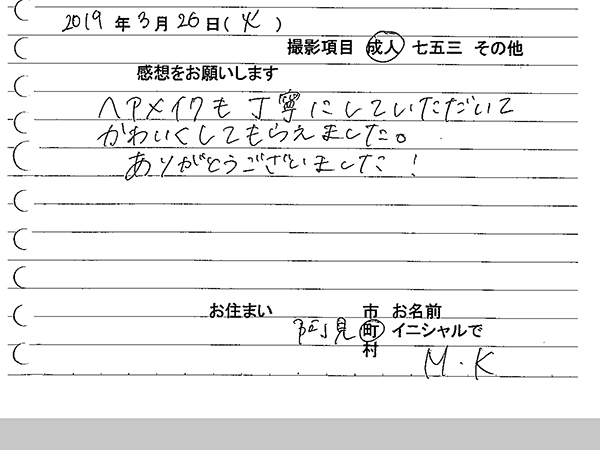 2019年3月26日(火)
撮影項目 成人 七五三 その他
感想をお願いします
ヘアメイクも丁寧にしていただいて
かわいくしてもらえました。
ありがとうございました!
お住まい 阿見 市 町 村
お名前 イニシャルで
M・K